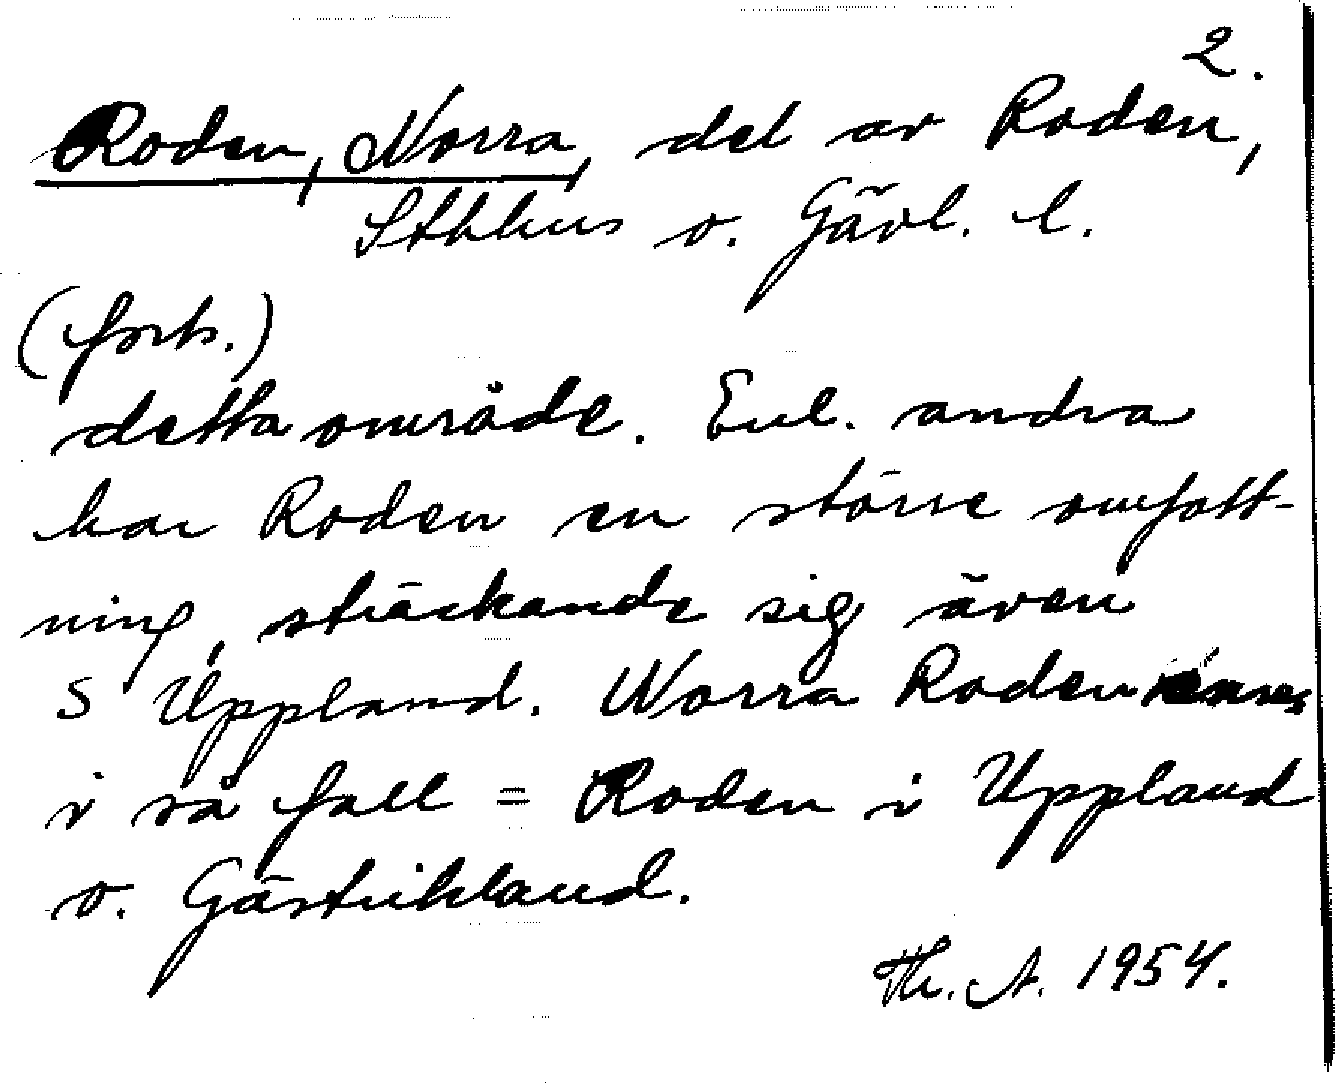 2.
Roden, Norra, del av Roden,
Sthlms o. Gävl. l.
(forts.)
detta område. Enl. andra
har Roden en större omfatt-
ning, sträckande sig även
S Uppland. Norra Roden
i så fall = Roden i Uppland
o. Gästrikland.
Th. A. 1954.